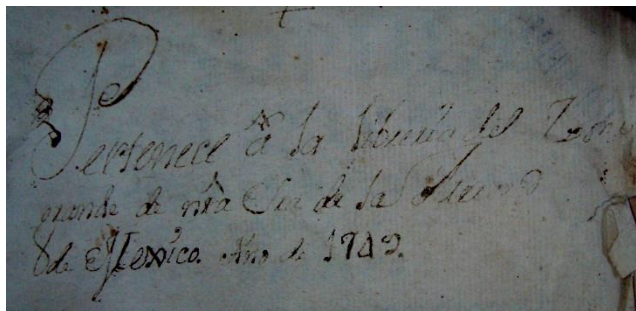 Pertenece à la libreria del Conv
grande de nrã Srã de la Merced
de Mexico. Año de 1749.